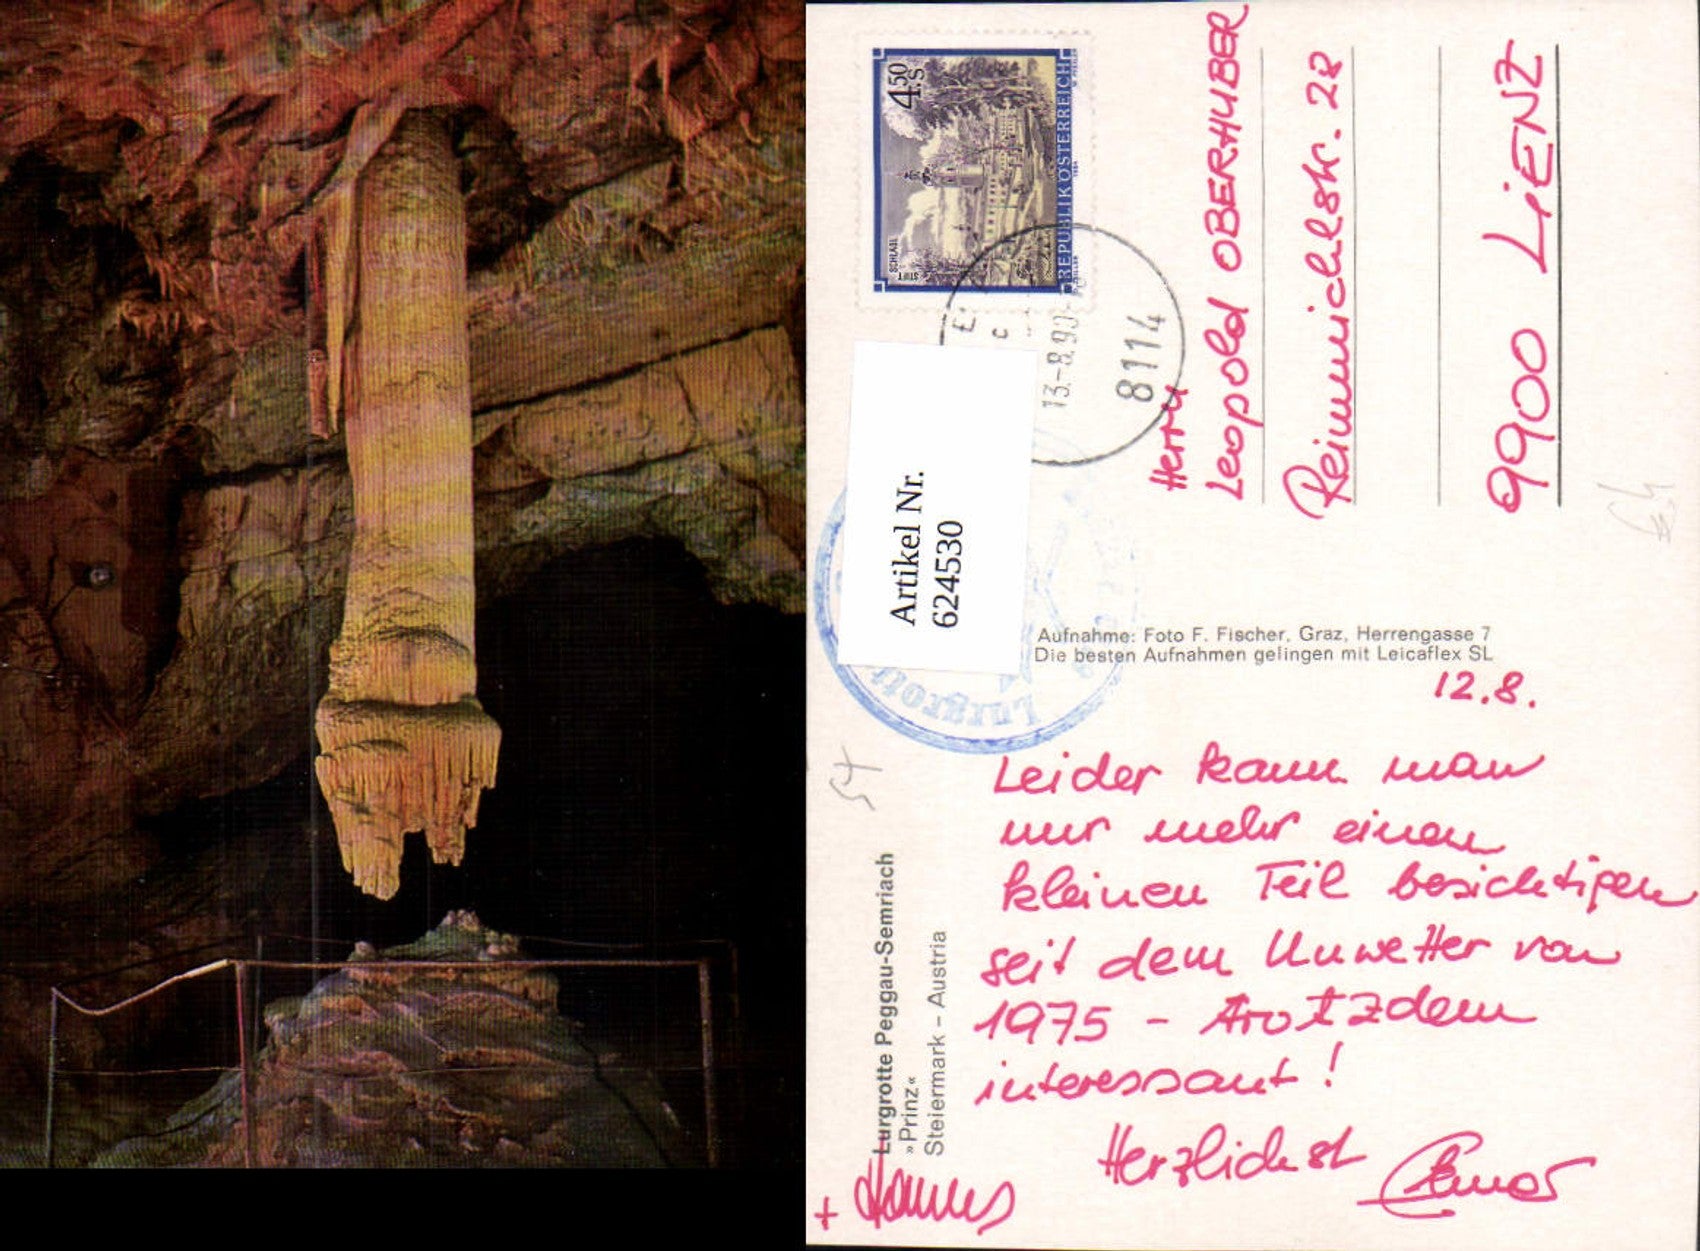 4.50
S
STIFT
SCHLÄGL
REPUBLIK ÖSTERREICH
13.-8.90
8114
Artikel Nr.
624530
Lurgrotte
Herrn
Leopold OBERHUBER
Reimmichlstr. 28
9900 LiENZ
Aufnahme: Foto F. Fischer, Graz, Herrengasse 7
Die besten Aufnahmen gelingen mit Leicaflex SL
12.8.
Leider kann man
nur mehr einen
kleinen Teil besichtigen
seit dem Unwetter von
1975 - Trotzdem
interessant!
Herzlichst
+ Hannes
Lurgrotte Peggau-Semriach
»Prinz«
Steiermark – Austria